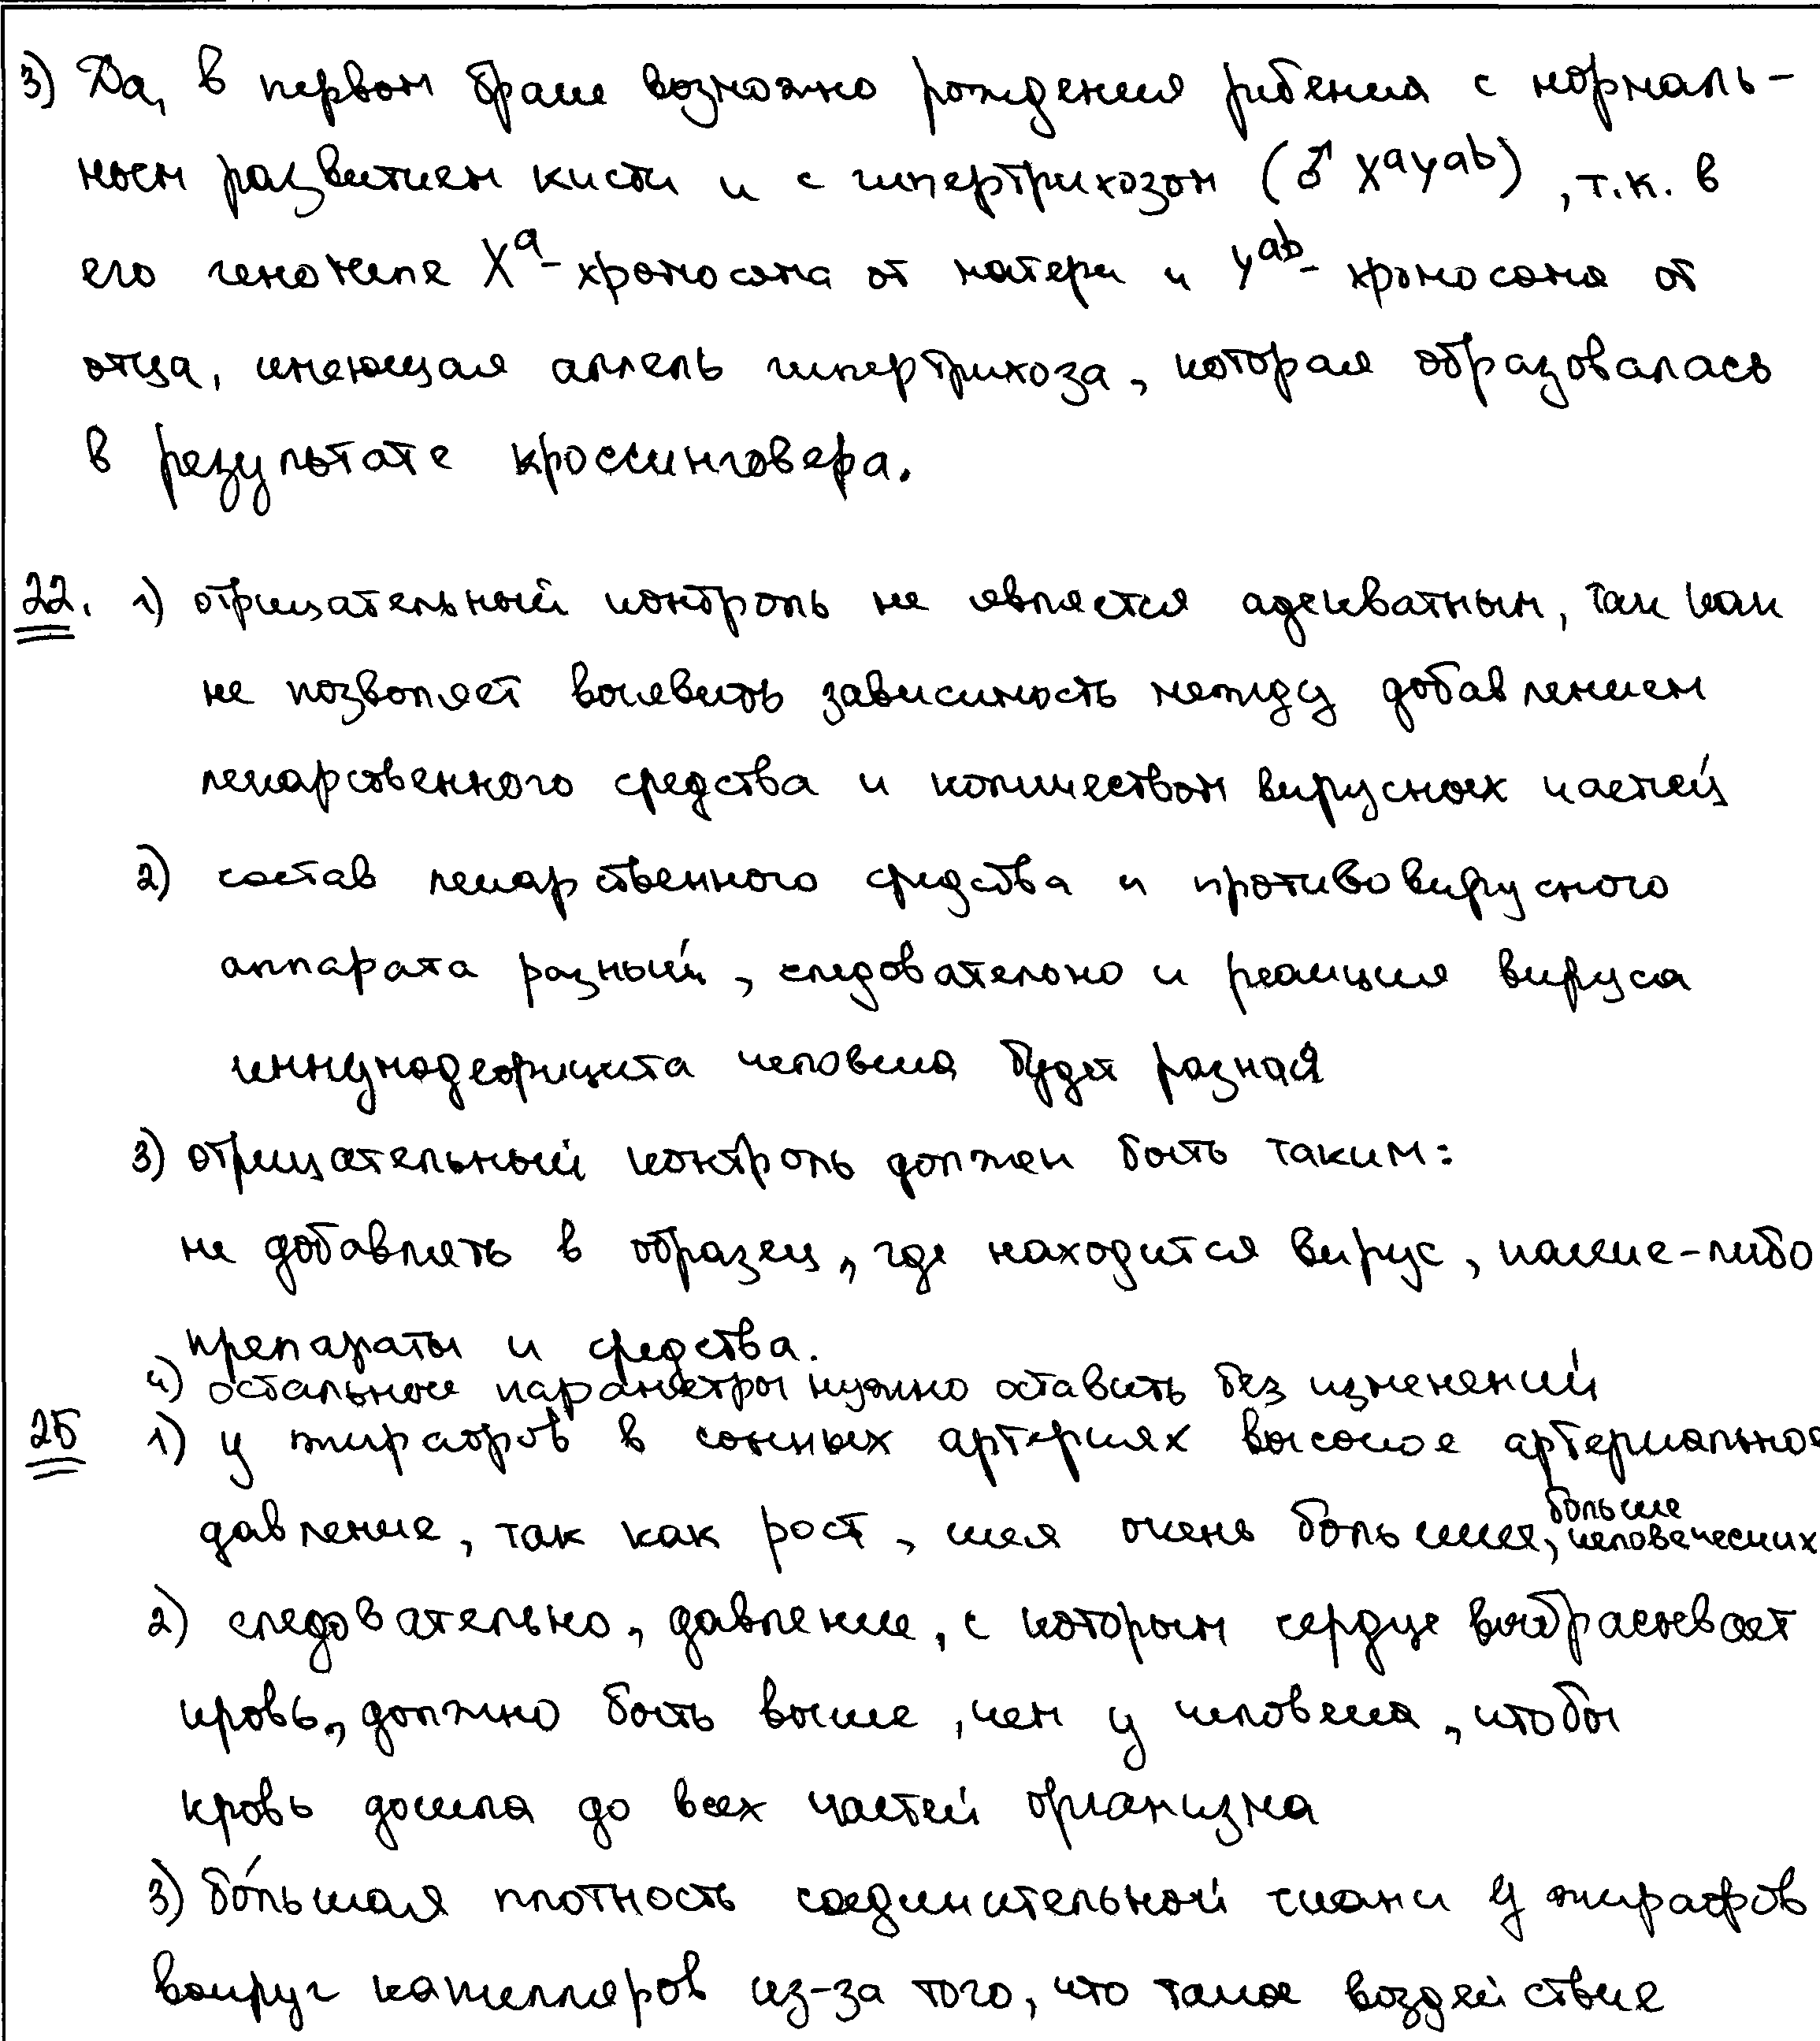 3) Да, в первом браке возможно рождения ребенка с нормаль-
ным развитием кисти и с гипертрихозом (♂ XᵃYᵃᵇ), т.к. в
его генотипе Xᵃ- хромосома от матери и Yᵃᵇ- хромосома от
отца, имеющая аллель гипертрихоза, которая образовалась
в результате кроссинговера.
22. 1) отрицательный контроль не является адекватным, так как
не позволяет выявить зависимость между добавлением
лекарственного средства и количеством вирусных частей
2) состав лекарственного средства и противовирусного
аппарата разный, следовательно и реакция вируса
иммунодефицита человека будет разная
3) отрицательный контроль должен быть таким:
не добавлять в образец, где находится вирус, какие-либо
препараты и средства.
4) остальные параметры нужно оставить без изменений
25 1) у жирафов в сонных артериях высокое артериальное
давление, так как рост, шея очень большие, больше человеческих
2) следовательно, давление, с которым сердце выбрасывает
кровь, должно быть выше, чем у человека, чтобы
кровь дошла до всех частей организма
3) бо́льшая плотность соединительной ткани у жирафов
вокруг капилляров из-за того, что такое воздействие